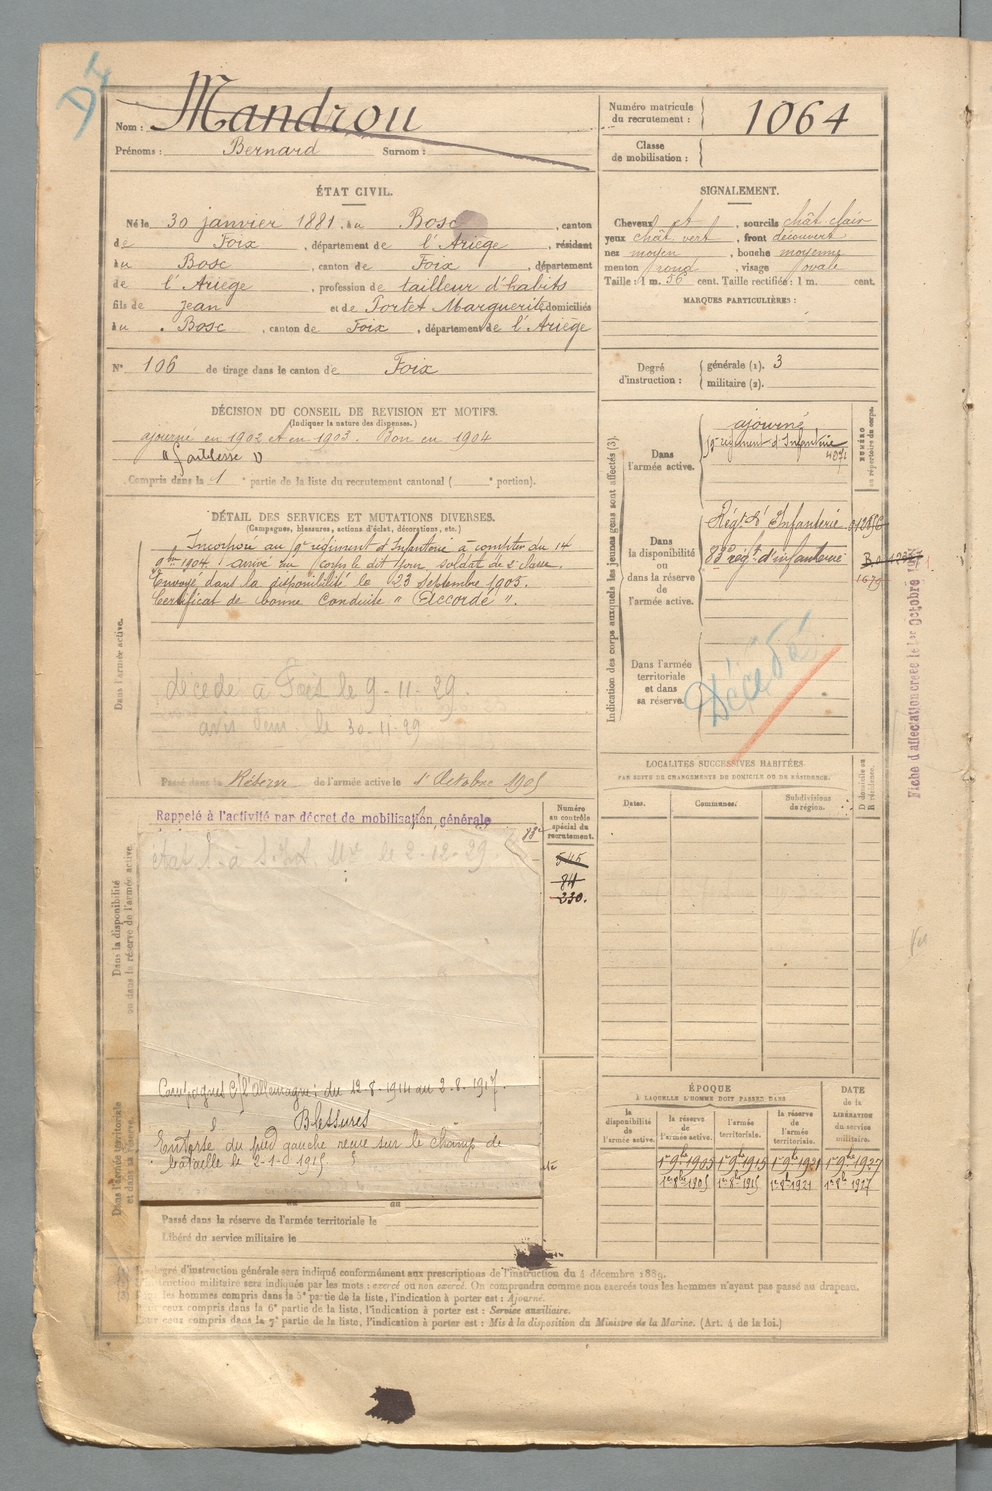 Nom : Mandrou
Prénoms : Bernard Surnom :
Numéro matricule du recrutement : 1064
Classe de mobilisation :
ÉTAT CIVIL.
Né le 30 janvier 1881, au Bosc, canton
de Foix, département de l'Ariège, résidant
au Bosc, canton de Foix, département
de l'Ariège, profession de tailleur d'habits
fils de Jean et de Fortet Marguerite domiciliés
au Bosc, canton de Foix, département de l'Ariège
N° 106 de tirage dans le canton de Foix
SIGNALEMENT.
Cheveux et, sourcils chât clair
yeux chât vert, front découvert
nez moyen, bouche moyenne
menton rond, visage ovale
Taille : 1 m. 56 cent. Taille rectifiée : 1 m. cent.
MARQUES PARTICULIÈRES :
Degré d'instruction : générale (1). 3
militaire (2).
DÉCISION DU CONSEIL DE REVISION ET MOTIFS.
(Indiquer la nature des dispenses.)
ajourné en 1902 et en 1903. Bon en 1904
"faiblesse"
Compris dans la 1e partie de la liste du recrutement cantonal ( e portion).
DÉTAIL DES SERVICES ET MUTATIONS DIVERSES.
(Campagnes, blessures, actions d'éclat, décorations, etc.)
Dans l'armée active.
Incorporé au 9e régiment d'Infanterie à compter du 14
9bre 1904. Arrivé au Corps le dit jour, soldat de 2e classe.
Envoyé dans la disponibilité le 23 Septembre 1905.
Certificat de bonne conduite "Accordé".
décédé à Foix le 9-11-29.
avis du le 30-11-29
Passé dans la Réserve de l'armée active le 1er Octobre 1905
Indication des corps auxquels les jeunes gens sont affectés (3).
NUMÉRO au répertoire du corps.
Dans l'armée active.
ajourné
9e régiment d'Infanterie
4071
Dans la disponibilité ou dans la réserve de l'armée active.
Régt d'Infanterie
83e régt d'infanterie
Dans l'armée territoriale et dans sa réserve.
Décédé
Fiche d'affectation créée le 1er Octobre
LOCALITÉS SUCCESSIVES HABITÉES
PAR SUITE DE CHANGEMENTS DE DOMICILE OU DE RÉSIDENCE.
Dates. Communes. Subdivisions de région. D domicile ou R résidence.
Dans la disponibilité ou dans la réserve de l'armée active.
Rappelé à l'activité par décret de mobilisation générale
le 2-12-29
Numéro au contrôle spécial du recrutement.
545
811
230.
Dans l'armée territoriale et dans sa réserve.
Campagnes C/ l'allemagne : du 12-8-1914 au 2-8-1917.
Blessures
Entorse du pied gauche reçue sur le champ de
bataille le 2-1-1915.
au
Passé dans la réserve de l'armée territoriale le
Libéré du service militaire le
ÉPOQUE
À LAQUELLE L'HOMME DOIT PASSER DANS
la disponibilité de l'armée active. la réserve de l'armée active. l'armée territoriale. la réserve de l'armée territoriale.
DATE de la LIBÉRATION du service militaire.
1er 9bre 1905 1er 9bre 1915 1er 9bre 1921 1er 9bre 1927
1er 8bre 1905 1er 8bre 1915 1er 8bre 1921 1er 8bre 1927
degré d'instruction générale sera indiqué conformément aux prescriptions de l'instruction du 4 décembre 1889.
instruction militaire sera indiquée par les mots : exercé ou non exercé. On comprendra comme non exercés tous les hommes n'ayant pas passé au drapeau.
les hommes compris dans la 5e partie de la liste, l'indication à porter est : Ajourné.
Pour ceux compris dans la 6e partie de la liste, l'indication à porter est : Service auxiliaire.
Pour ceux compris dans la 7e partie de la liste, l'indication à porter est : Mis à la disposition du Ministre de la Marine. (Art. 4 de la loi.)